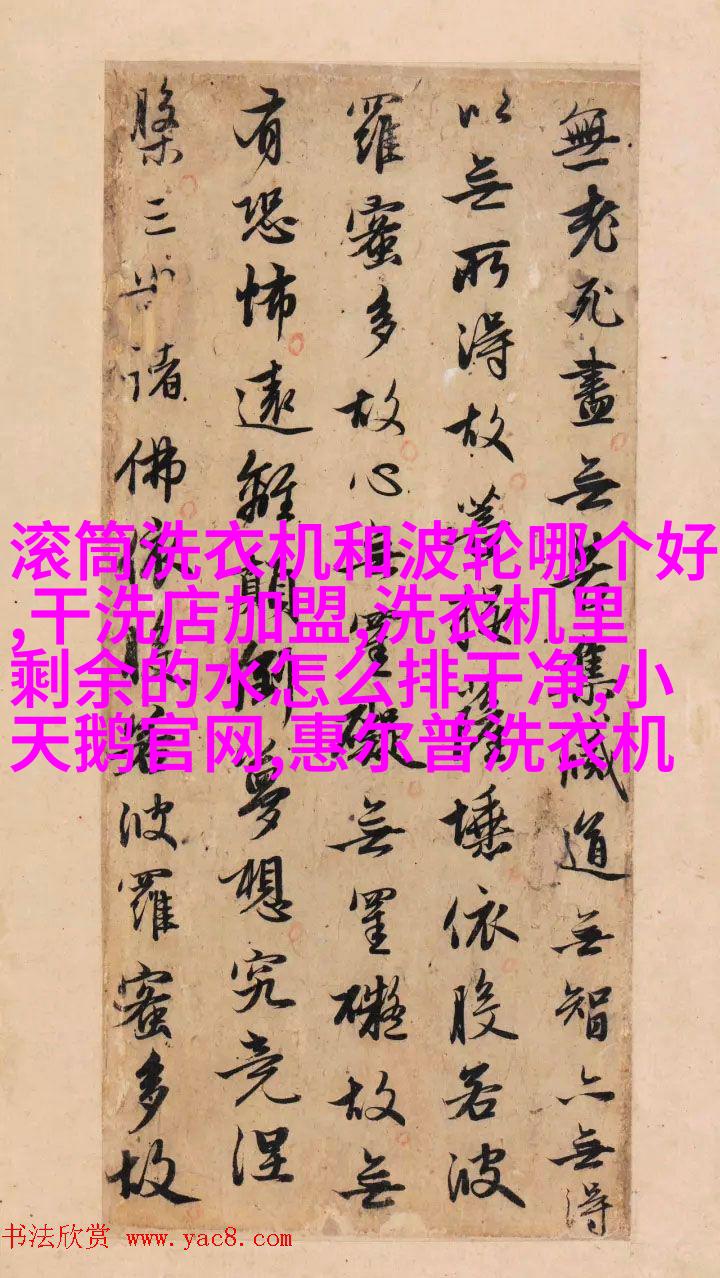 無老死盡无苦集滅道无智亦无得
以无所得故菩提薩埵依般若波
羅蜜多故心无罣礙无罣礙故无
有恐怖遠離顛倒夢想究竟涅
槃三世諸佛依般若波羅蜜多故
滚筒洗衣机和波轮哪个好
,干洗店加盟,洗衣机里
剩余的水怎么排干净,小
天鹅官网,惠尔普洗衣机
书法欣赏 www.yac8.com